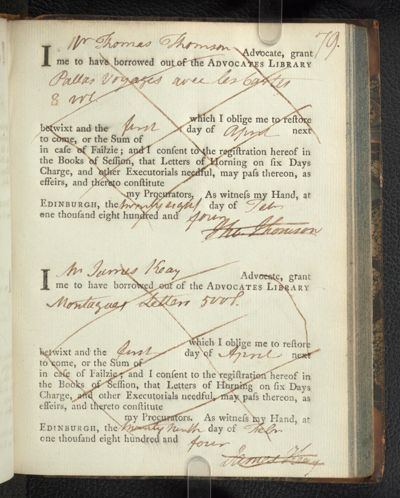 79.
I Mr Thomas Thomson Advocate, grant
me to have borrowed out of the ADVOCATES LIBRARY
Pallas Voyages avec les Cartes
8 vol
which I oblige me to reſtore
betwixt and the first day of April next
to come, or the Sum of
in caſe of Failzie; and I conſent to the regiſtration hereof in
the Books of Seſſion, that Letters of Horning on ſix Days
Charge, and other Executorials needful, may paſs thereon, as
effeirs, and thereto conſtitute
my Procurators. As witneſs my Hand, at
EDINBURGH, the twenty eight day of Feb
one thouſand eight hundred and four
Tho. Thomson
I Mr James Keay Advocate, grant
me to have borrowed out of the ADVOCATES LIBRARY
Montagues Letters 5 vol.
which I oblige me to reſtore
betwixt and the first day of April next
to come, or the Sum of
in caſe of Failzie; and I conſent to the regiſtration hereof in
the Books of Seſſion, that Letters of Horning on ſix Days
Charge, and other Executorials needful, may paſs thereon, as
effeirs, and thereto conſtitute
my Procurators. As witneſs my Hand, at
EDINBURGH, the twenty ninth day of Febr
one thouſand eight hundred and four
James Keay